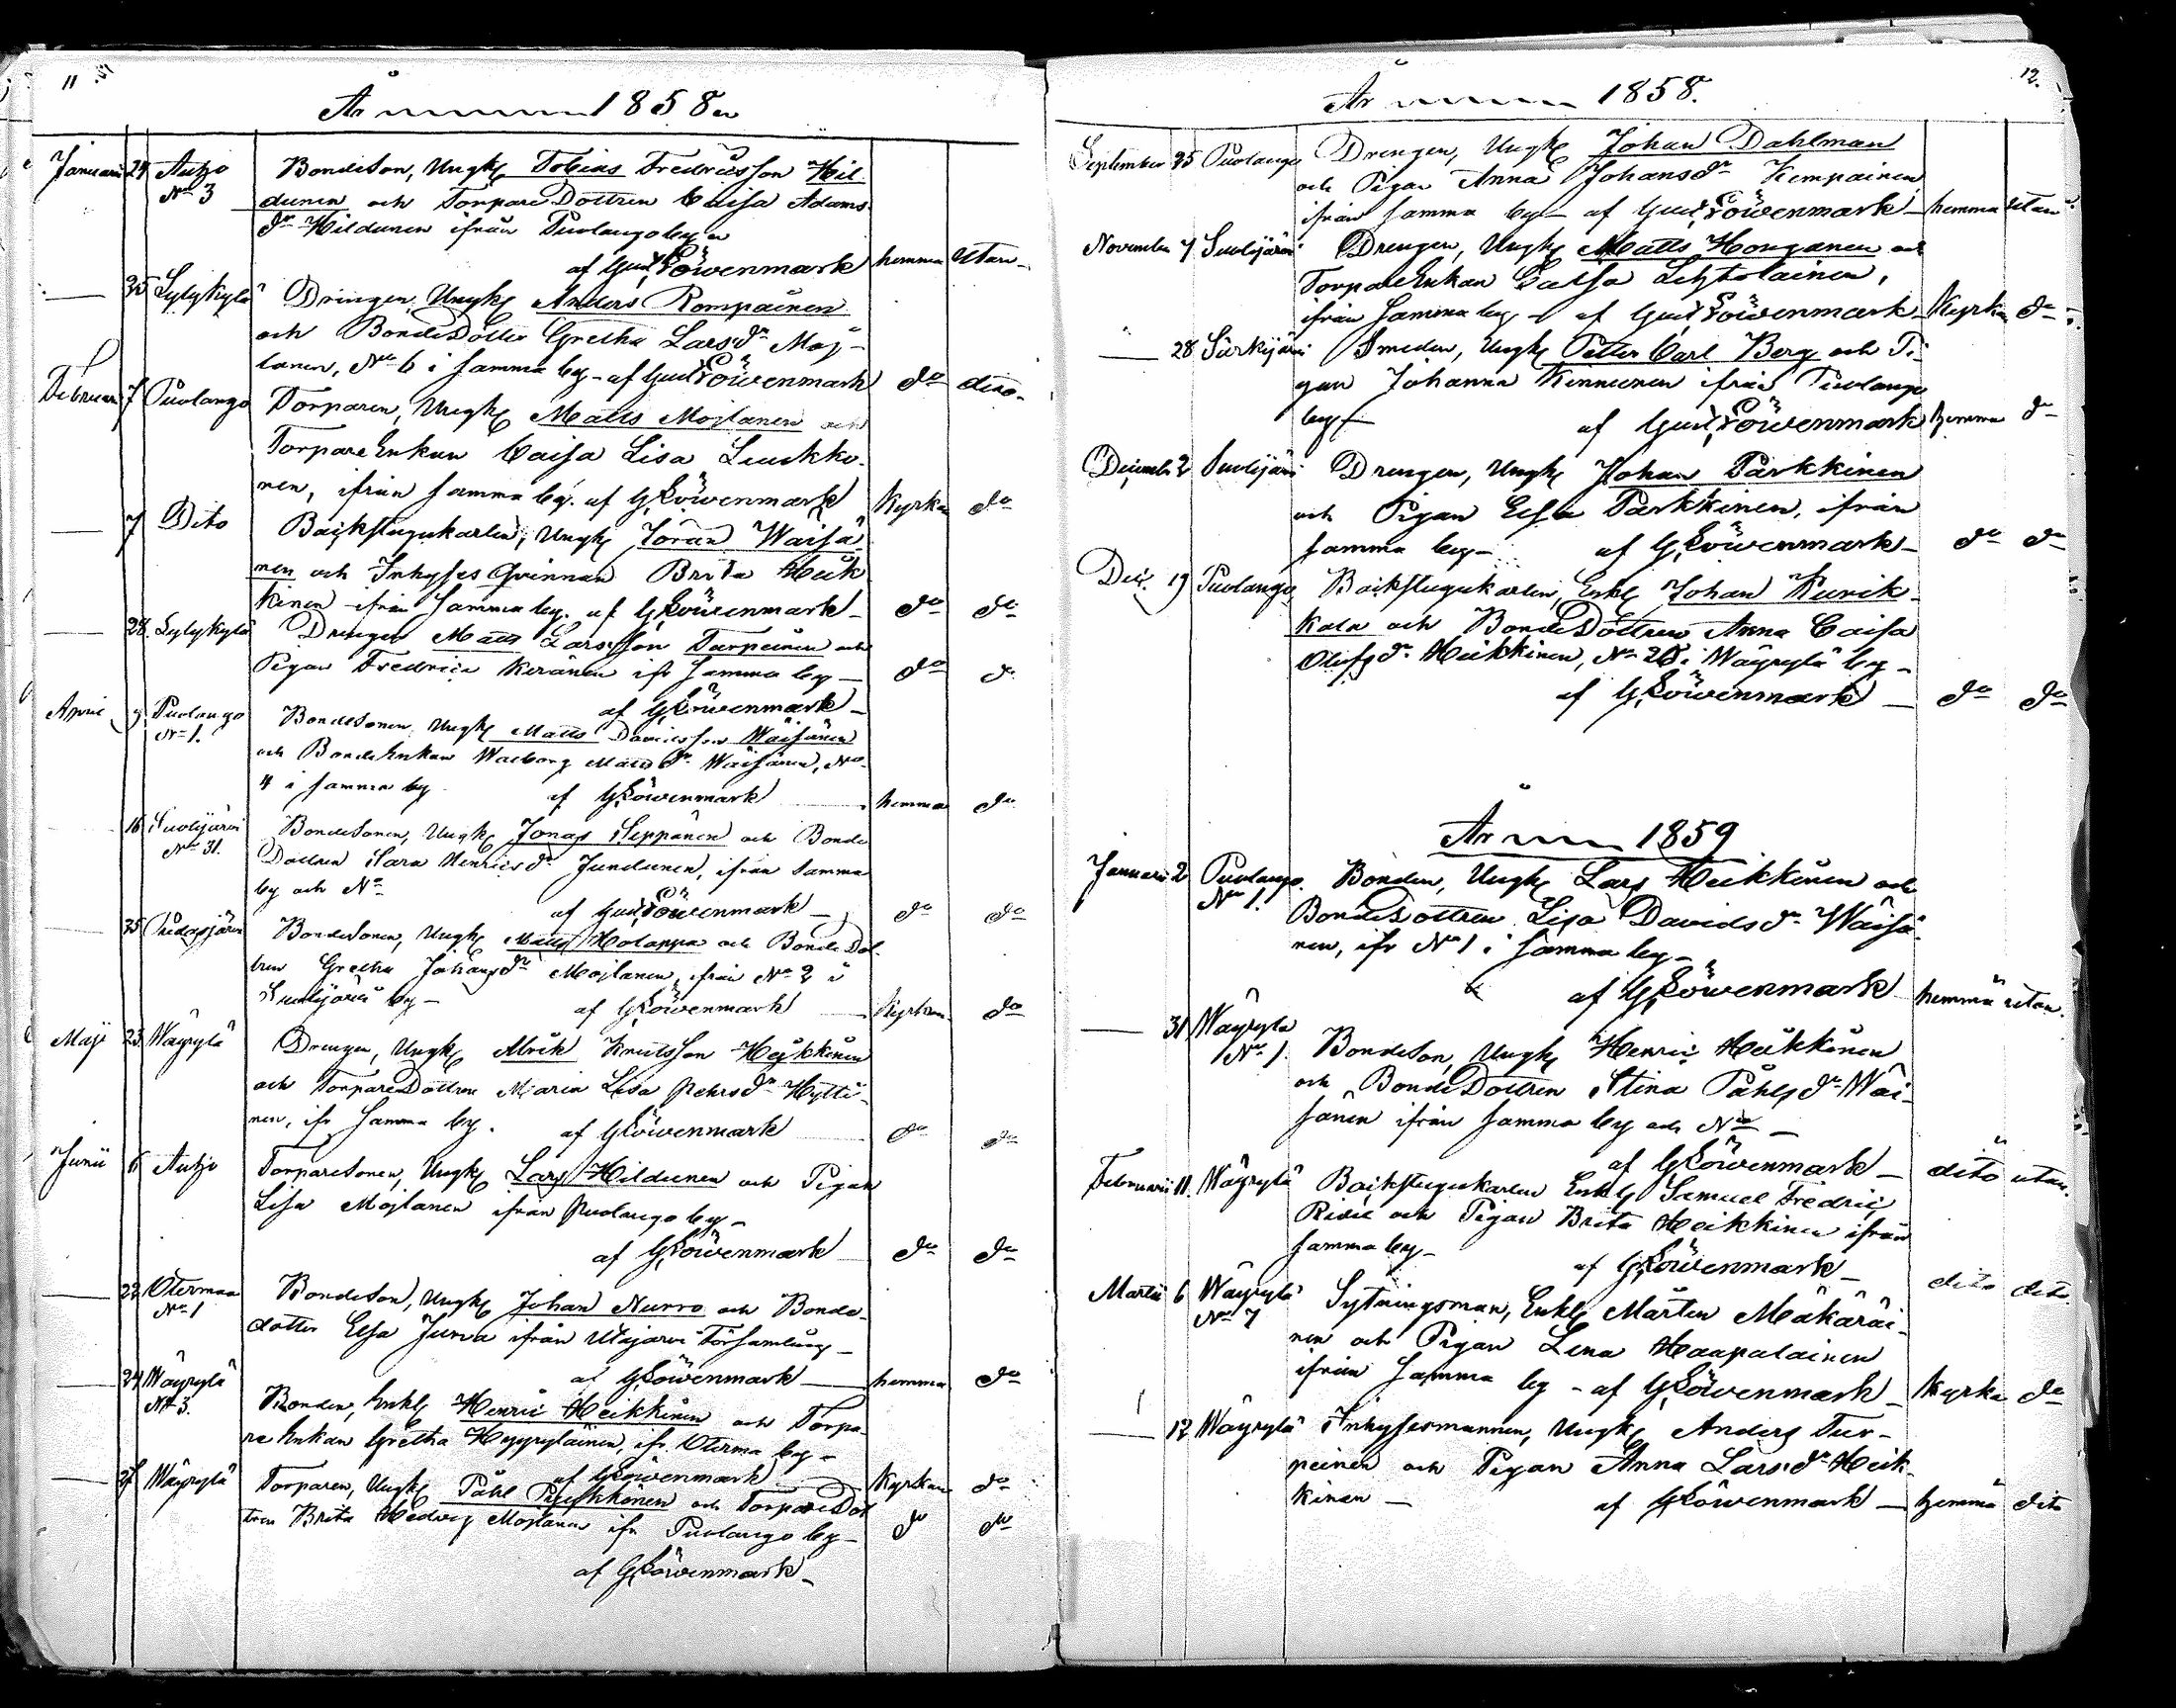 11
År 1858
Januarii 24 Autjo Bondeson, Ungk Tobias Fredricsson Hil
No 3 dunen och TorpareDottren Caisa Adams
dr Hildunen ifrån Puolango by
af Gust Löwenmark hemma utan
25 Lylykylä Drängen, Ungk Anders Kompainen
och BondeDotter Gretha Larsdr Moj-
lanen, No 6 i samma by af Gust Löwenmark do dito
Februari 7 Puolango Torparen, Ungk Matts Mojlanen och
TorpareEnkan Caisa Lisa Luukko-
nen, ifrån samma by. af G Löwenmark Kyrkan do
7 Dito Backstugukarlen, Ungk Jöran Wäisä
nen och Inhyses Qvinnan Brita Heik
kinen ifrån samma by. af G Löwenmark do do
28. Lylykylä Drengen Matts Larsson Turpeinen och
Pigan Fredrica Keränen ifr samma by do do
af G Löwenmark
April 9 Puolango Bondesonen, Ungk Matts Davidsson Wäisänen
No 1. och BondeEnkan Walborg Mattsdr Wäisänen, No
4 i samma by af G Löwenmark hemma do
16 Suolijärvi Bondesonen, Ungk Jonas Seppänen och Bonde
No 31. Dottren Sara Henricsdr Jundunen, ifrån samma
by och No af Gust Löwenmark do do
25 Bondesonen, Ungk Matts Holappa och BondeDot-
tren Gretha Johansdr Mojlanen, ifrån No 2 i
Suolijärvi by af G Löwenmark Kyrkan do
Maji 23 Wäyrylä Drengen, Ungk Alrik Knutsson Heikkinen
och TorpareDottren Maria Lisa Pehrsdr Hytti-
nen, ifr samma by. af G Löwenmark do do
Junii 6 Autjo Torparesonen, Ungk Lars Hildunen och Pigan
Lisa Mojlanen ifrån Puolango by
af G Löwenmark do do
22 Oterma Bondeson, Ungk Johan Nurro och Bonde-
No 1 dotter Elsa Jurva ifrån Utajärvi Församling
af G Löwenmark hemma do
24 Wäyrylä Bonden, Enkl Henric Heikkinen och Torpa-
No 3. re Enkan Gretha Hyyryläinen, ifr Oterma by
af G Löwenmark Kyrkan do
27 Wäyrylä Torparen, Ungk Påhl och TorpareDot
tren Brita Hedvig Mojlanen ifr Puolango by do do
af G Löwenmark
12.
År 1858.
September 25 Puolango Drengen, Ungk Johan Dahlman
och Pigan Anna Johansdr Kempainen
ifrån samma by af Gust Löwenmark hemma utan
November 7 Suolijärvi Drengen, Ungk Matts Honganen och
TorpareEnkan Caisa Lehtolainen,
ifrån samma by af Gust Löwenmark Kyrkan do
28 Särkijärvi Smeden, Ungk Petter Carl Berg och Pi-
gan Johanna Kinnunen ifrån Puolango
by af Gust Löwenmark hemma do
December 2 Suolijärvi Drengen, Ungk Johan Parkkinen
och Pigan Elsa Parkkinen, ifrån
samma by af G Löwenmark do do
Dec. 19 Puolango Backstugukarlen, Enkl Johan Kurik-
kala och BondeDottren Anna Caisa
Olofsdr Heikkinen, No 20 i Wäyrylä by
af G Löwenmark do do
År 1859
Januarii 2 Puolango Bonden, Ungk Lars Heikkinen och
No 1. BondeDottren Lisa Davidsdr Wäisä-
nen, ifr No 1 i samma by
af G Löwenmark hemma utan.
31 Wäyrylä
No 1. Bondeson, Ungk Henric Heikkinen
och BondeDottren Stina Påhlsdr Wäi-
sänen ifrån samma by och No
af G Löwenmark dito utan.
Februarii 11. Wäyrylä Backstugukarlen Enkl Samuel Fredric
och Pigan Brita Heikkinen ifrån
samma by
af G Löwenmark dito dito.
Martii 6 Wäyrylä Sytningsman, Enkl Mårten Mäkäräi-
No 7 nen och Pigan Lena Haapalainen
ifrån samma by af G Löwenmark Kyrka do
12 Wäyrylä Inhysesmannen, Ungk Anders Tur-
peinen och Pigan Anna Larsdr Heik-
kinen af G Löwenmark hemma dito